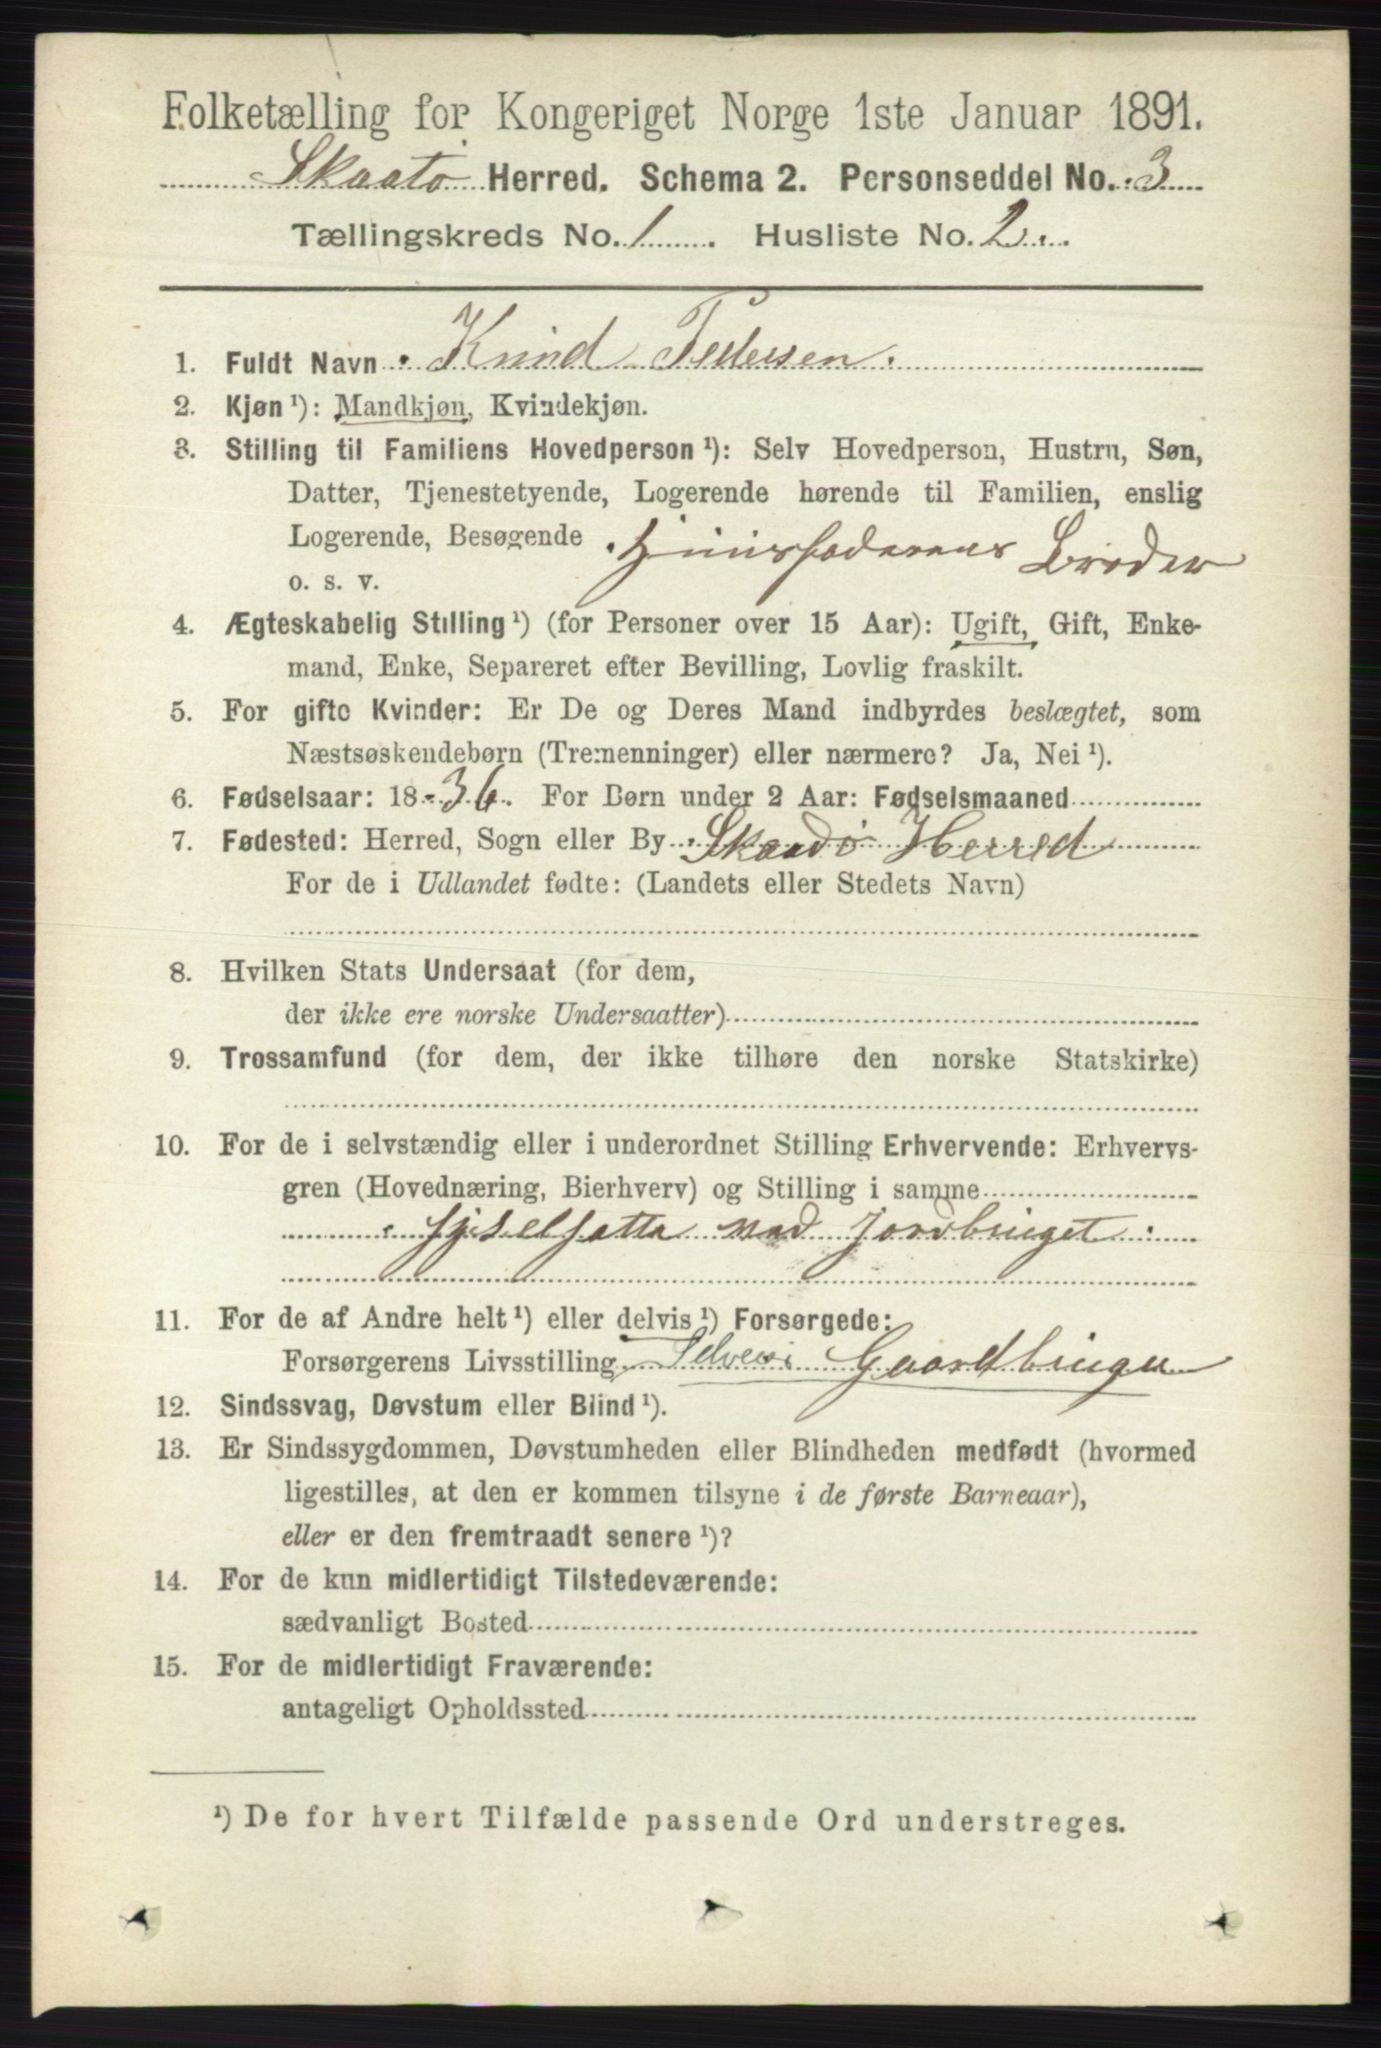 Folketælling for Kongeriget Norge 1ste Januar 1891.
Skaatø Herred. Schema 2. Personseddel No. 3
Tællingskreds No. 1. Husliste No. 2.
1. Fuldt Navn Knud Pedersen.
2. Kjøn ¹): Mandkjøn, Kvindekjøn.
3. Stilling til Familiens Hovedperson ¹): Selv Hovedperson, Hustru, Søn,
Datter, Tjenestetyende, Logerende hørende til Familien, enslig
Logerende, Besøgende Huusfaderens Broder
o. s. v.
4. Ægteskabelig Stilling ¹) (for Personer over 15 Aar): Ugift, Gift, Enke-
mand, Enke, Separeret efter Bevilling, Lovlig fraskilt.
5. For gifte Kvinder: Er De og Deres Mand indbyrdes beslægtet, som
Næstsøskendebørn (Tremenninger) eller nærmere? Ja, Nei ¹).
6. Fødselsaar: 18 36. For Børn under 2 Aar: Fødselsmaaned
7. Fødested: Herred, Sogn eller By Skaadø Herred
For de i Udlandet fødte: (Landets eller Stedets Navn)
8. Hvilken Stats Undersaat (for dem,
der ikke ere norske Undersaatter)
9. Trossamfund (for dem, der ikke tilhøre den norske Statskirke)
10. For de i selvstændig eller i underordnet Stilling Erhvervende: Erhvervs-
gren (Hovednæring, Bierhverv) og Stilling i samme
sysselsatte med Jordbruget
11. For de af Andre helt ¹) eller delvis ¹) Forsørgede:
Forsørgerens Livsstilling Gaardbruger
12. Sindssvag, Døvstum eller Blind ¹).
13. Er Sindssygdommen, Døvstumheden eller Blindheden medfødt (hvormed
ligestilles, at den er kommen tilsyne i de første Barneaar),
eller er den fremtraadt senere ¹)?
14. For de kun midlertidigt Tilstedeværende:
sædvanligt Bosted
15. For de midlertidigt Fraværende:
antageligt Opholdssted
¹) De for hvert Tilfælde passende Ord understreges.